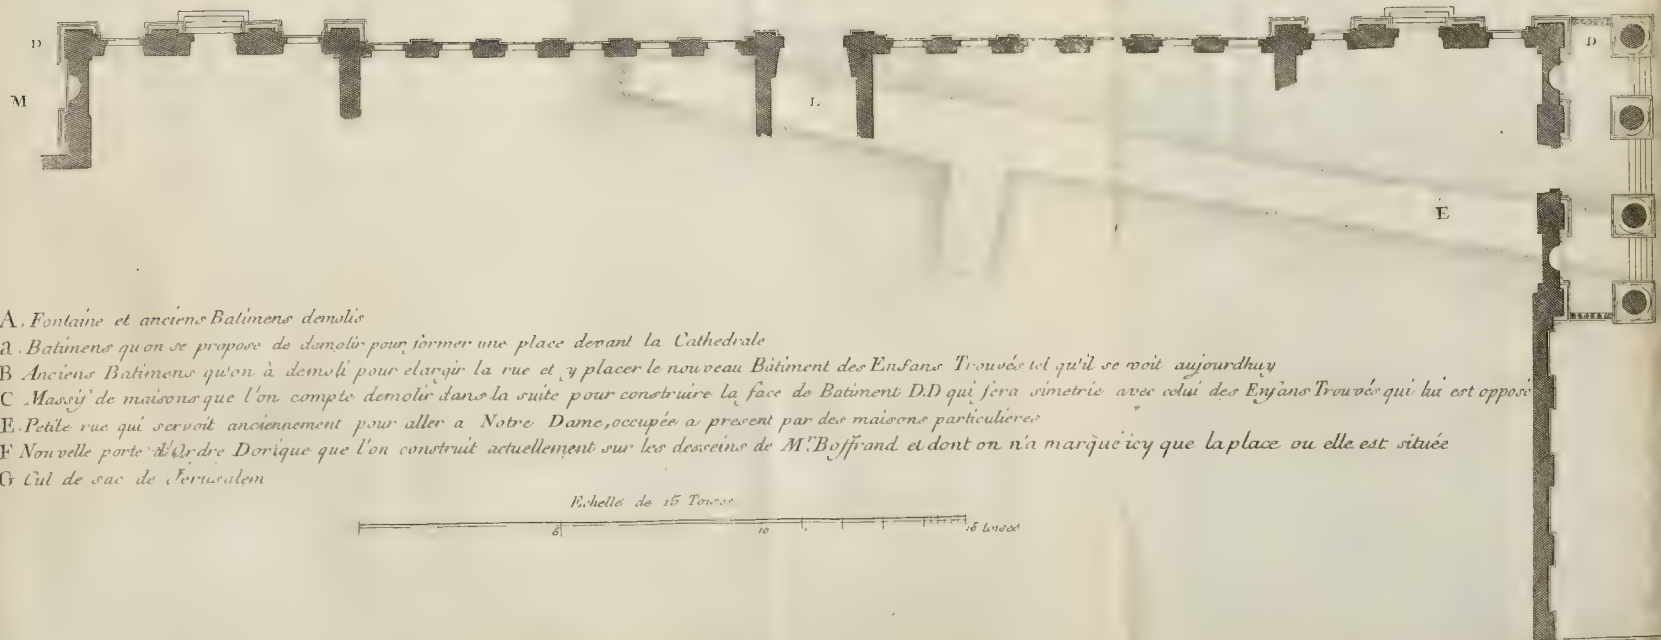 D
D
M
L
E
A. Fontaine et anciens Batimens demolis
a. Batimens qu'on se propose de demolir pour former une place devant la Cathedrale
B Anciens Batimens qu'on à demoli pour elargir la rue et y placer le nouveau Bâtiment des Enfans Trouvés tel qu'il se voit aujourdhuy
C Massif de maisons que l'on compte demolir dans la suite pour construire la face de Batiment D.D qui fera simetrie avec celui des Enfans Trouvés qui lui est opposé
E. Petite rue qui servoit anciennement pour aller a Notre Dame, occupée a present par des maisons particulieres
F Nouvelle porte d'Ordre Dorique que l'on construit actuellement sur les desseins de Mr. Boffrand et dont on n'a marqué icy que la place ou elle est située
G Cul de sac de Jerusalem
Echelle de 15 Toises
5 10 15 toises